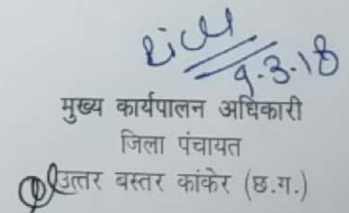 9.3.18
मुख्य कार्यपालन अधिकारी
जिला पंचायत
उत्तर बस्तर कांकेर (छ.ग.)